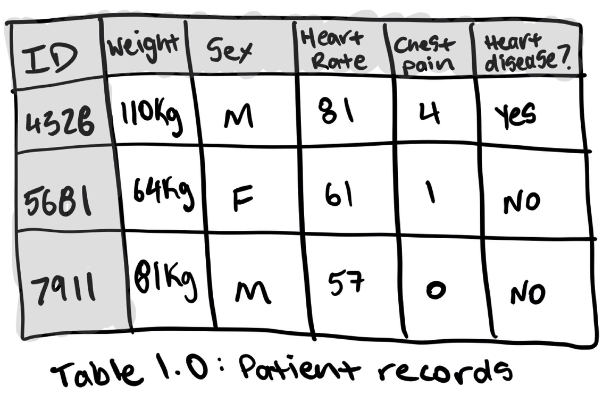 ID Weight Sex Heart Rate Chest pain Heart disease?
4328 110Kg M 81 4 Yes
5681 64Kg F 61 1 NO
7911 81Kg M 57 0 NO
Table 1.0: Patient records